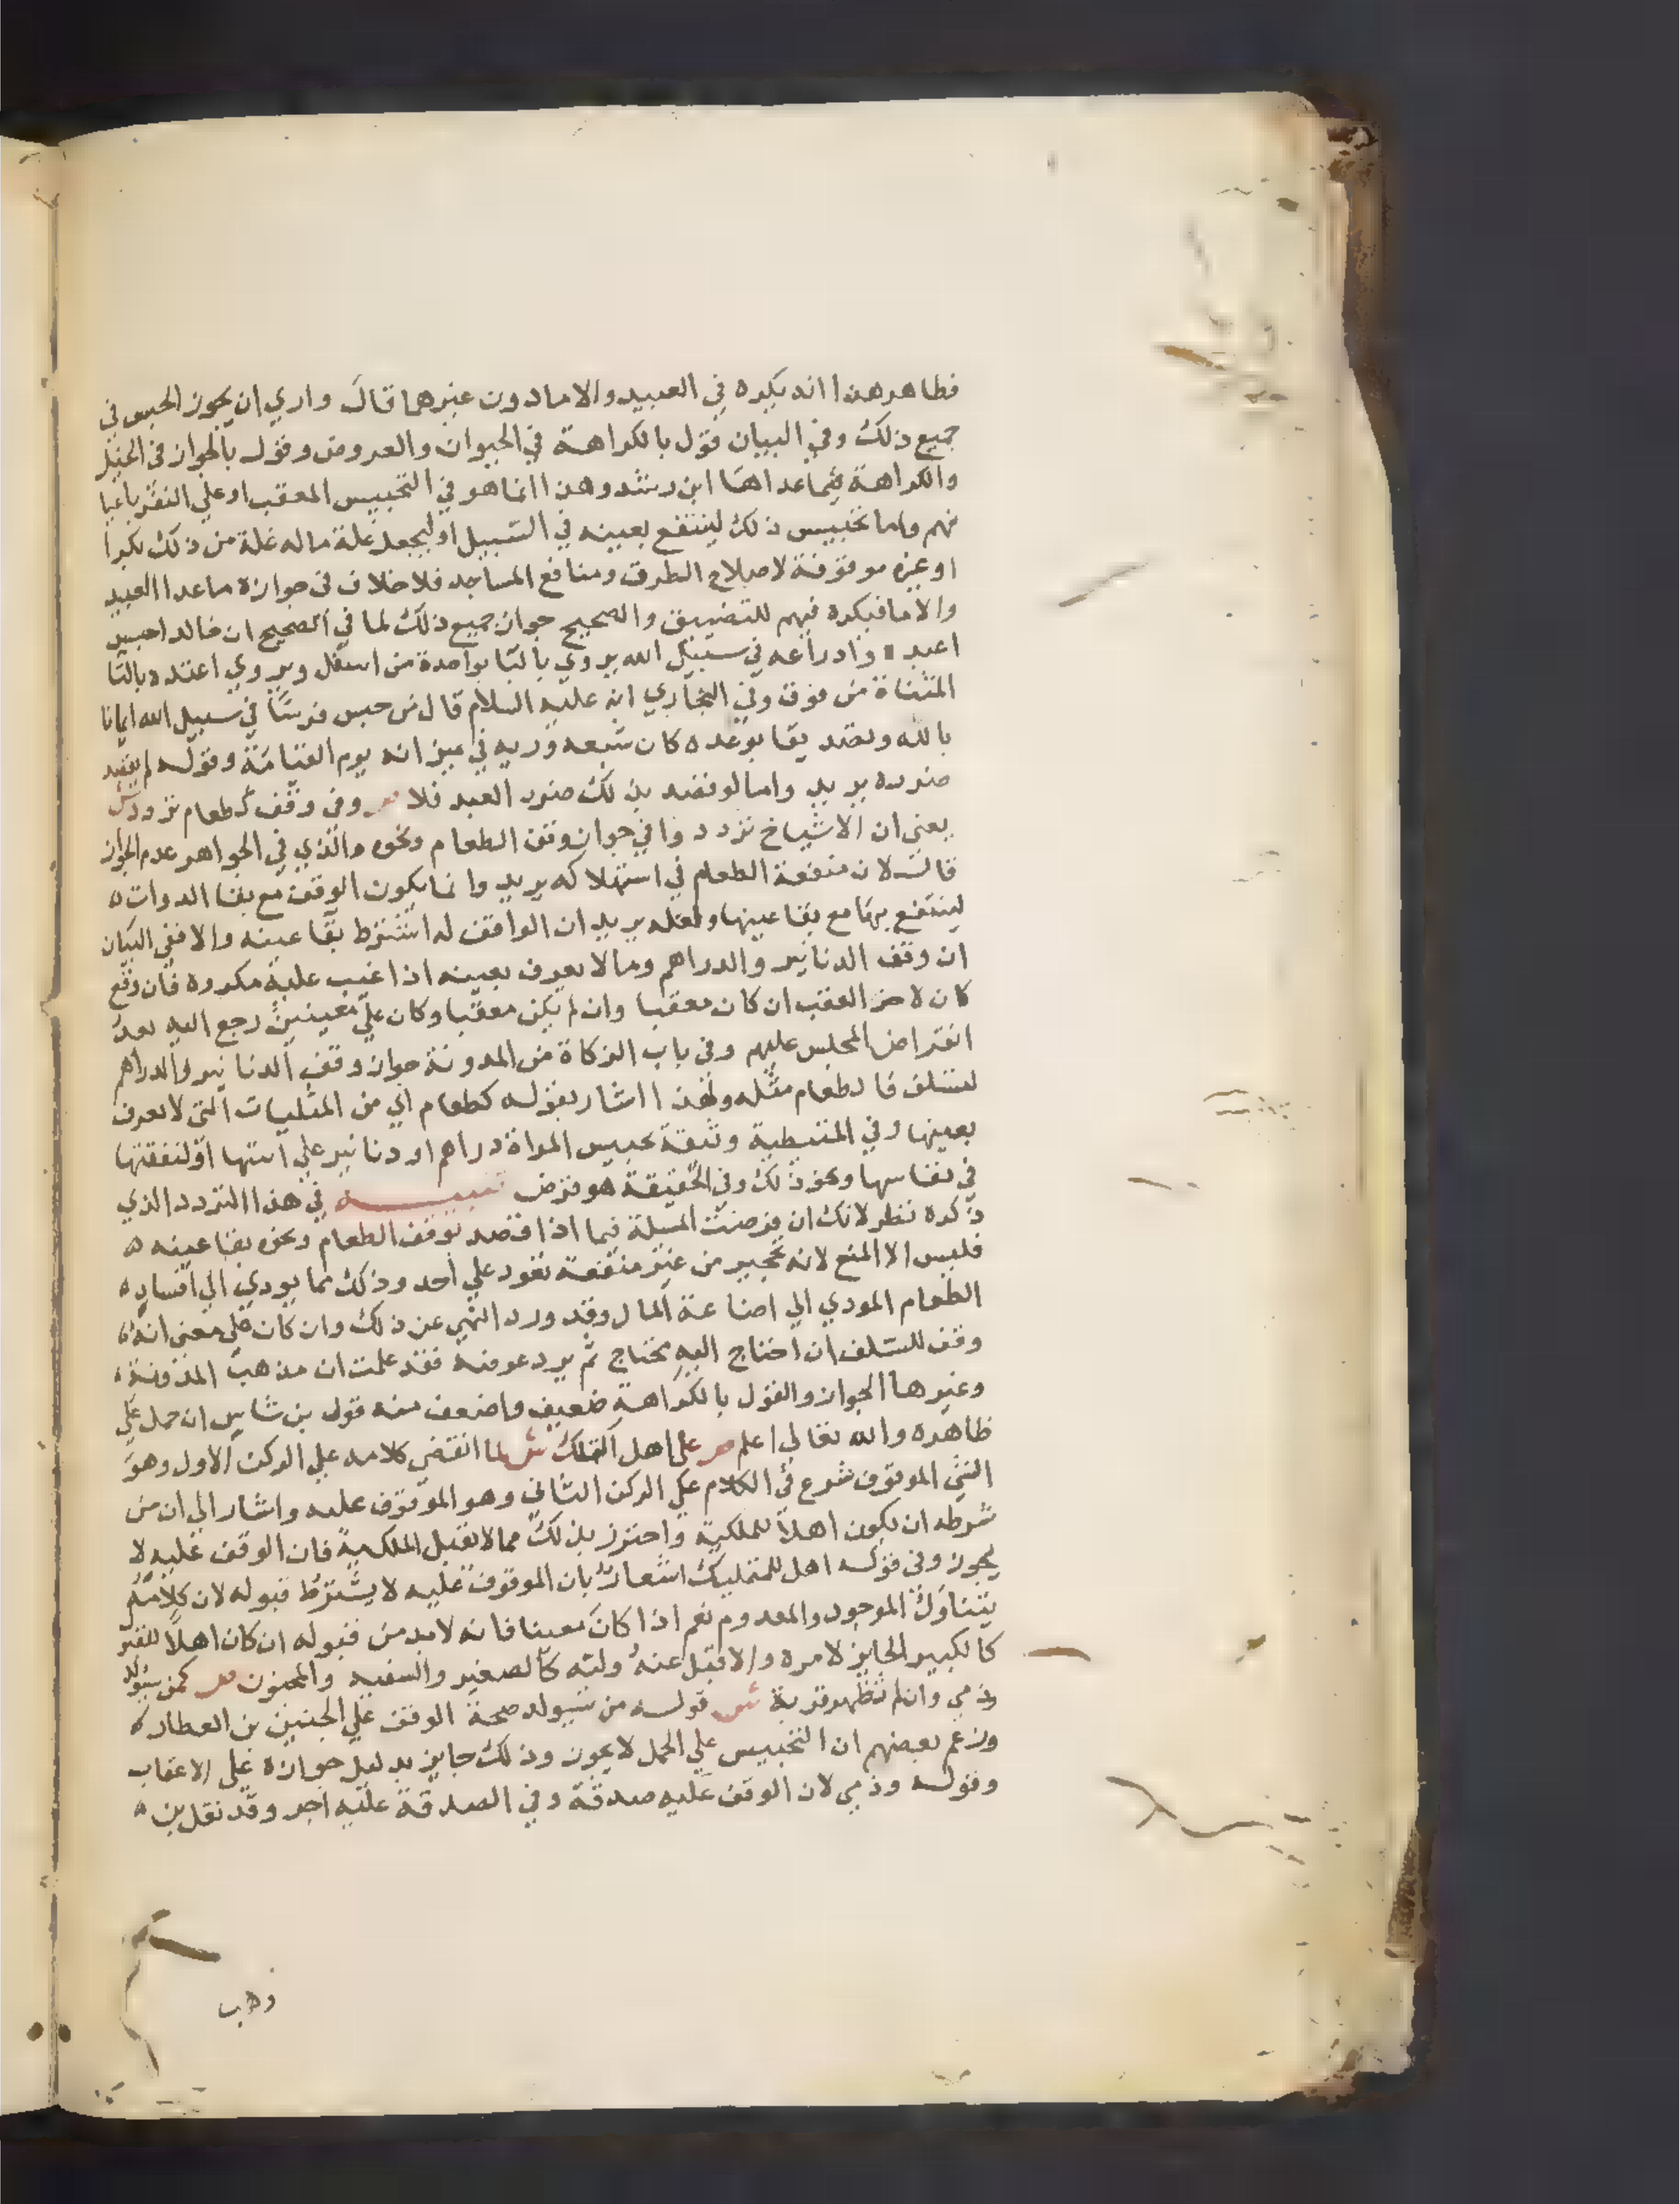 فظاهر هذا انه يكره في العبيد والاما دون غيرهما قال واري ان يجوز الحبس في
جميع ذلك وفي البيان قول بالكراهة في الحيوان والعروض وقول بالجواز في الخيل
والكراهة فيما عداها ابن رشد وهذا انما هو في التحبيس المعقب او علي النفر باعيا
نهم واما تحبيس ذلك لينتفع بعينه في السبيل او ليجعل غلة ماله غلة من ذلك بكرا
او غيره موقوفة لاصلاح الطرق ومنافع المساجد فلا خلاف في جوازه ماعدا العبيد
والاما فيكره فيهم للتضييق والصحيح جواز جميع ذلك لما في الصحيح ان خالد احبس
اعبده وادراعه في سبيل الله يروي بالبا بواحدة من اسفل ويروي اعتده بالتا
المثناة من فوق وفي البخاري انه عليه السلام قال من حبس فرسا في سبيل الله ايمانا
بالله وتصديقا بوعده كان شبعه وريه في ميزانه يوم القيامة وقوله لم يقصد
ضرره يريد واما لو قصد بذلك ضرر العبد فلا ص وفي وقف كطعام تردد ش
يعني ان الاشياخ ترددوا في جواز وقف الطعام ونحوه والذي في الجواهر عدم الجواز
قال لان منفعة الطعام في استهلاكه يريد وانما يكون الوقف مع بقا الدوات
لينتفع بها مع بقا عينها ولعله يريد ان الواقف له اشترط بقا عينه والا ففي البيان
ان وقف الدنانير والدراهم وما لا يعرف بعينه اذا غيب عليه مكروه فان وقع
كان لاخر العقب ان كان معقبا وان لم يكن معقبا وكان علي معينين رجع اليه بعد
انقراض المحبس عليهم وفي باب الزكاة من المدونة جواز وقف الدنانير والدراهم
لتسلف فالطعام مثله ولهذا اشار بقوله كطعام اي من المثليات التي لا تعرف
بعينها وفي المتيطية وثيقة تحبيس المراة دراهم او دنانير علي ابنتها او لنفقتها
في نفاسها ونحو ذلك وفي الحقيقة هو قرض تنبيه في هذا التردد الذي
ذكره نظر لانك ان فرضت المسلة فيما اذا قصد بوقف الطعام ونحوه بقا عينه
فليس الا المنع لانه تحجير من غير منفعة تعود علي احد وذلك مما يودي الي افساد
الطعام المودي الي اضاعة المال وقد ورد النهي عن ذلك وان كان علي معني انه
وقف للسلف ان احتاج اليه محتاج ثم يرد عوضه فقد علمت ان مذهب المدونة
وغيرها الجواز والقول بالكراهة ضعيف واضعف منه قول بن شاس ان حمل علي
ظاهره والله تعالي اعلم ص علي اهل التملك ش لما انقضي كلامه علي الركن الاول وهو
الشي الموقوف شرع في الكلام علي الركن الثاني وهو الموقوف عليه واشار الي ان من
شرطه ان يكون اهلا للملكية واحترز بذلك مما لا تقبل الملكية فان الوقف عليه لا
يجوز وفي قوله اهل للتمليك اشعار بان الموقوف عليه لا يشترط قبوله لان كلامه
يتناول الموجود والمعدوم نعم اذا كان معينا فانه لابد من قبوله ان كان اهلا للقبر
كالكبير الجايز لامره والا قبل عنه وليه كالصغير والسفيه والمجنون ص كمن سيولد
وذمي وان لم تظهر قربة ش قوله من سيولد صحة الوقف علي الجنين بن العطار
وزعم بعضهم ان التحبيس علي الحمل لا يجوز وذلك جايز بدليل جوازه علي الاعقاب
وقوله وذمي لان الوقف عليه صدقة وفي الصدقة عليه اجر وقد نقل بن
وهب